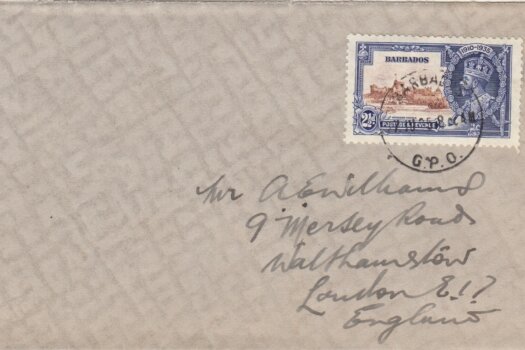 1910-1935
BARBADOS
2½
POSTAGE & REVENUE
BARBAD
G.P.O.
Mr A E Williams
9 Mersey Road
Walthamstow
London E.17
England